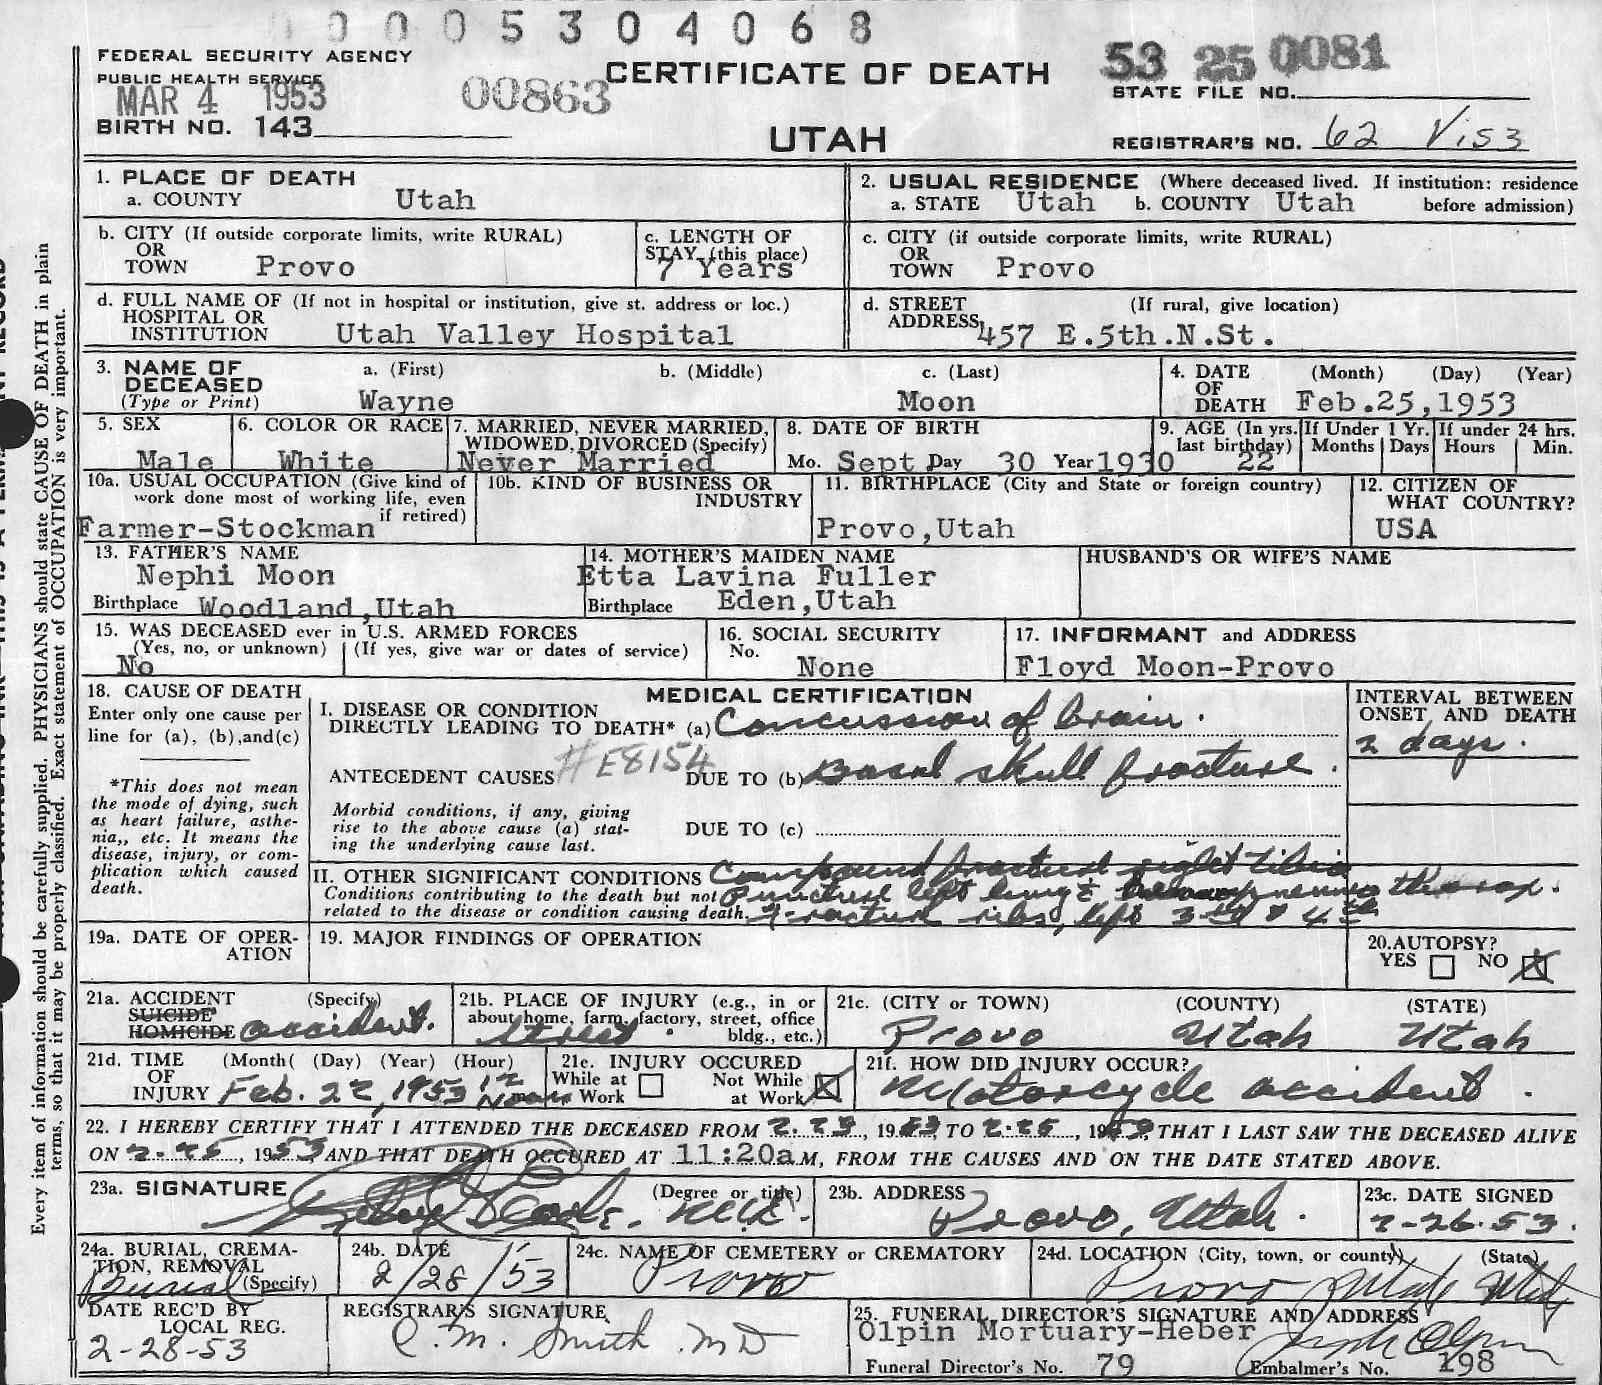 0 0 0 5 3 0 4 0 6 8
FEDERAL SECURITY AGENCY
PUBLIC HEALTH SERVICE
MAR 4 1953
00863
CERTIFICATE OF DEATH
53 25 0081
STATE FILE NO.
BIRTH NO. 143
UTAH
REGISTRAR'S NO. 62 V153
1. PLACE OF DEATH
a. COUNTY Utah
2. USUAL RESIDENCE (Where deceased lived. If institution: residence
a. STATE Utah b. COUNTY Utah before admission)
b. CITY (If outside corporate limits, write RURAL)
OR
TOWN Provo
c. LENGTH OF
STAY (this place)
7 Years
c. CITY (if outside corporate limits, write RURAL)
OR
TOWN Provo
d. FULL NAME OF (If not in hospital or institution, give st. address or loc.)
HOSPITAL OR
INSTITUTION Utah Valley Hospital
d. STREET (If rural, give location)
ADDRESS 457 E.5th.N.St.
3. NAME OF DECEASED
(Type or Print)
a. (First) b. (Middle) c. (Last)
Wayne Moon
4. DATE OF DEATH (Month) (Day) (Year)
Feb.25,1953
5. SEX
Male
6. COLOR OR RACE
White
7. MARRIED, NEVER MARRIED,
WIDOWED, DIVORCED (Specify)
Never Married
8. DATE OF BIRTH
Mo. Sept Day 30 Year 1930
9. AGE (In yrs. last birthday) 22
If Under 1 Yr. Months Days
If under 24 hrs. Hours Min.
10a. USUAL OCCUPATION (Give kind of
work done most of working life, even
if retired)
Farmer-Stockman
10b. KIND OF BUSINESS OR
INDUSTRY
11. BIRTHPLACE (City and State or foreign country)
Provo,Utah
12. CITIZEN OF
WHAT COUNTRY?
USA
13. FATHER'S NAME
Nephi Moon
Birthplace Woodland,Utah
14. MOTHER'S MAIDEN NAME
Etta Lavina Fuller
Birthplace Eden,Utah
HUSBAND'S OR WIFE'S NAME
15. WAS DECEASED ever in U.S. ARMED FORCES
(Yes, no, or unknown) (If yes, give war or dates of service)
No
16. SOCIAL SECURITY
No. None
17. INFORMANT and ADDRESS
Floyd Moon-Provo
18. CAUSE OF DEATH
Enter only one cause per
line for (a), (b),and(c)
*This does not mean
the mode of dying, such
as heart failure, asthe-
nia,, etc. It means the
disease, injury, or com-
plication which caused
death.
MEDICAL CERTIFICATION
I. DISEASE OR CONDITION
DIRECTLY LEADING TO DEATH* (a) Concussion of brain.
#E8154
ANTECEDENT CAUSES DUE TO (b) Basal skull fracture.
Morbid conditions, if any, giving
rise to the above cause (a) stat-
ing the underlying cause last.
DUE TO (c)
II. OTHER SIGNIFICANT CONDITIONS Compound fractured right tibia
Conditions contributing to the death but not Punctured left lung & thorax.
related to the disease or condition causing death. Fracture ribs, left 3rd & 4th
INTERVAL BETWEEN
ONSET AND DEATH
2 days.
19a. DATE OF OPER-
ATION
19. MAJOR FINDINGS OF OPERATION
20.AUTOPSY?
YES NO X
21a. ACCIDENT (Specify)
SUICIDE
HOMICIDE accident.
21b. PLACE OF INJURY (e.g., in or
about home, farm, factory, street, office
bldg., etc.)
Street.
21c. (CITY or TOWN) (COUNTY) (STATE)
Provo Utah Utah
21d. TIME (Month( (Day) (Year) (Hour)
OF
INJURY Feb. 22, 1953 12 Noon
21e. INJURY OCCURED
While at Work
Not While at Work X
21f. HOW DID INJURY OCCUR?
Motorcycle accident.
22. I HEREBY CERTIFY THAT I ATTENDED THE DECEASED FROM 2-23, 1953, TO 2-25, 1953, THAT I LAST SAW THE DECEASED ALIVE
ON 2-25, 1953, AND THAT DEATH OCCURED AT 11:20aM, FROM THE CAUSES AND ON THE DATE STATED ABOVE.
23a. SIGNATURE (Degree or title)
23b. ADDRESS
Provo, Utah.
23c. DATE SIGNED
2-26-53.
24a. BURIAL, CREMA-
TION, REMOVAL
(Specify)
Burial
24b. DATE
2/28/53
24c. NAME OF CEMETERY or CREMATORY
Provo
24d. LOCATION (City, town, or county) (State)
Provo Utah Utah
DATE REC'D BY
LOCAL REG.
2-28-53
REGISTRAR'S SIGNATURE
C. M. Smith MD
25. FUNERAL DIRECTOR'S SIGNATURE AND ADDRESS
Olpin Mortuary-Heber
Funeral Director's No. 79
Embalmer's No. 198
Every item of information should be carefully supplied. PHYSICIANS should state CAUSE OF DEATH in plain
terms, so that it may be properly classified. Exact statement of OCCUPATION is very important.